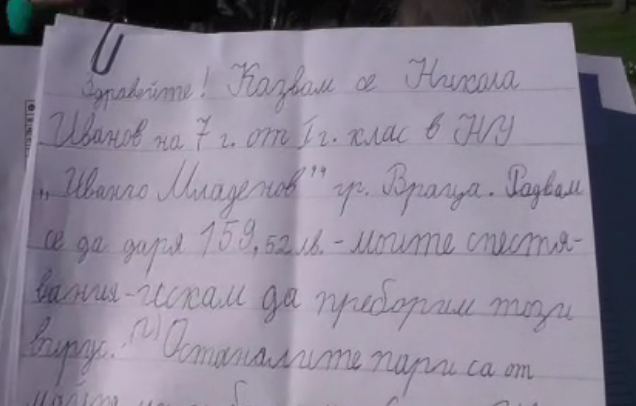 Здравейте! Казвам се Никола
Иванов на 7 г. от I г. клас в НУ
„Иванчо Младенов" гр. Враца. Радвам
се да даря 159,52 лв. - моите спестя-
вания - искам да преборим този
вирус. Останалите пари са от